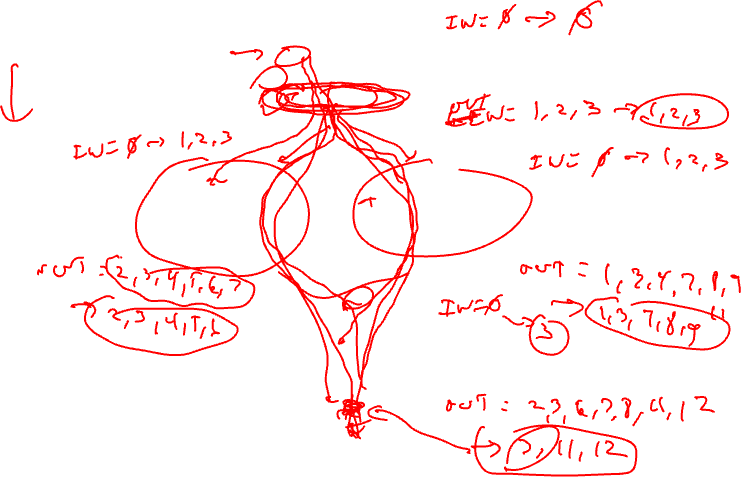 IN = ∅ → ∅
OUT = 1, 2, 3 → 1, 2, 3
IN = ∅ → 1, 2, 3
IN = ∅ → 1, 2, 3
OUT = 2, 3, 4, 5, 6, 7
→ 2, 3, 4, 5, 6
OUT = 1, 3, 4, 7, 8, 9
→ 1, 3, 7, 8, 9
IN = ∅ → 3
OUT = 2, 3, 6, 7, 8, 11, 12
11, 12